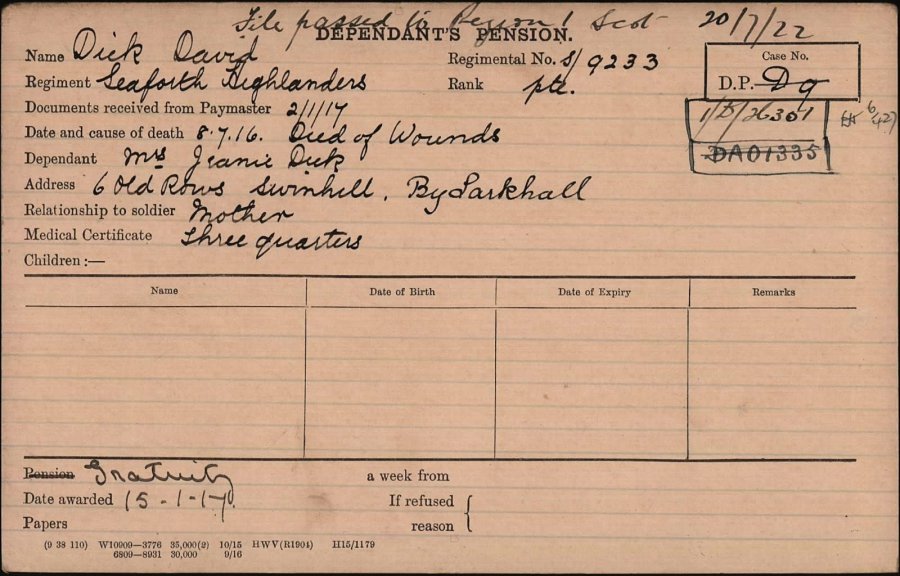 File passed to Region 1 Scot 20/7/22
DEPENDANT'S PENSION.
Name Dick David
Regimental No. S/9233
Case No.
D.P. Dg
Regiment Seaforth Highlanders
Rank pte.
Documents received from Paymaster 2/1/17
1/D/26301
Date and cause of death 8.7.16. Died of Wounds
DA01335
Dependant Mrs Jeanie Dick
Address 6 Old Rows Swinhill. By Larkhall
Relationship to soldier Mother
Medical Certificate Three quarters
Children :—
Name Date of Birth Date of Expiry Remarks
Pension Gratuity a week from
Date awarded 15-1-17. If refused
Papers reason
(9 38 110) W10909—3776 35,000(2) 10/15 HWV(R1904) H15/1179
6809—8931 30,000 9/16